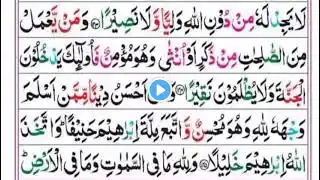 لَا يَجِدْ لَهٗ مِنْ دُوْنِ اللّٰهِ وَلِيًّا وَّلَا نَصِيْرًا ۝ وَمَنْ يَّعْمَلْ
مِنَ الصّٰلِحٰتِ مِنْ ذَكَرٍ اَوْ اُنْثٰى وَهُوَ مُؤْمِنٌ فَاُولٰٓئِكَ يَدْخُلُوْنَ
الْجَنَّةَ وَلَا يُظْلَمُوْنَ نَقِيْرًا ۝ وَمَنْ اَحْسَنُ دِيْنًا مِّمَّنْ اَسْلَمَ
وَجْهَهٗ لِلّٰهِ وَهُوَ مُحْسِنٌ وَّاتَّبَعَ مِلَّةَ اِبْرٰهِيْمَ حَنِيْفًا ؕ وَاتَّخَذَ
اللّٰهُ اِبْرٰهِيْمَ خَلِيْلًا ۝ وَلِلّٰهِ مَا فِى السَّمٰوٰتِ وَمَا فِى الْاَرْضِ ؕ